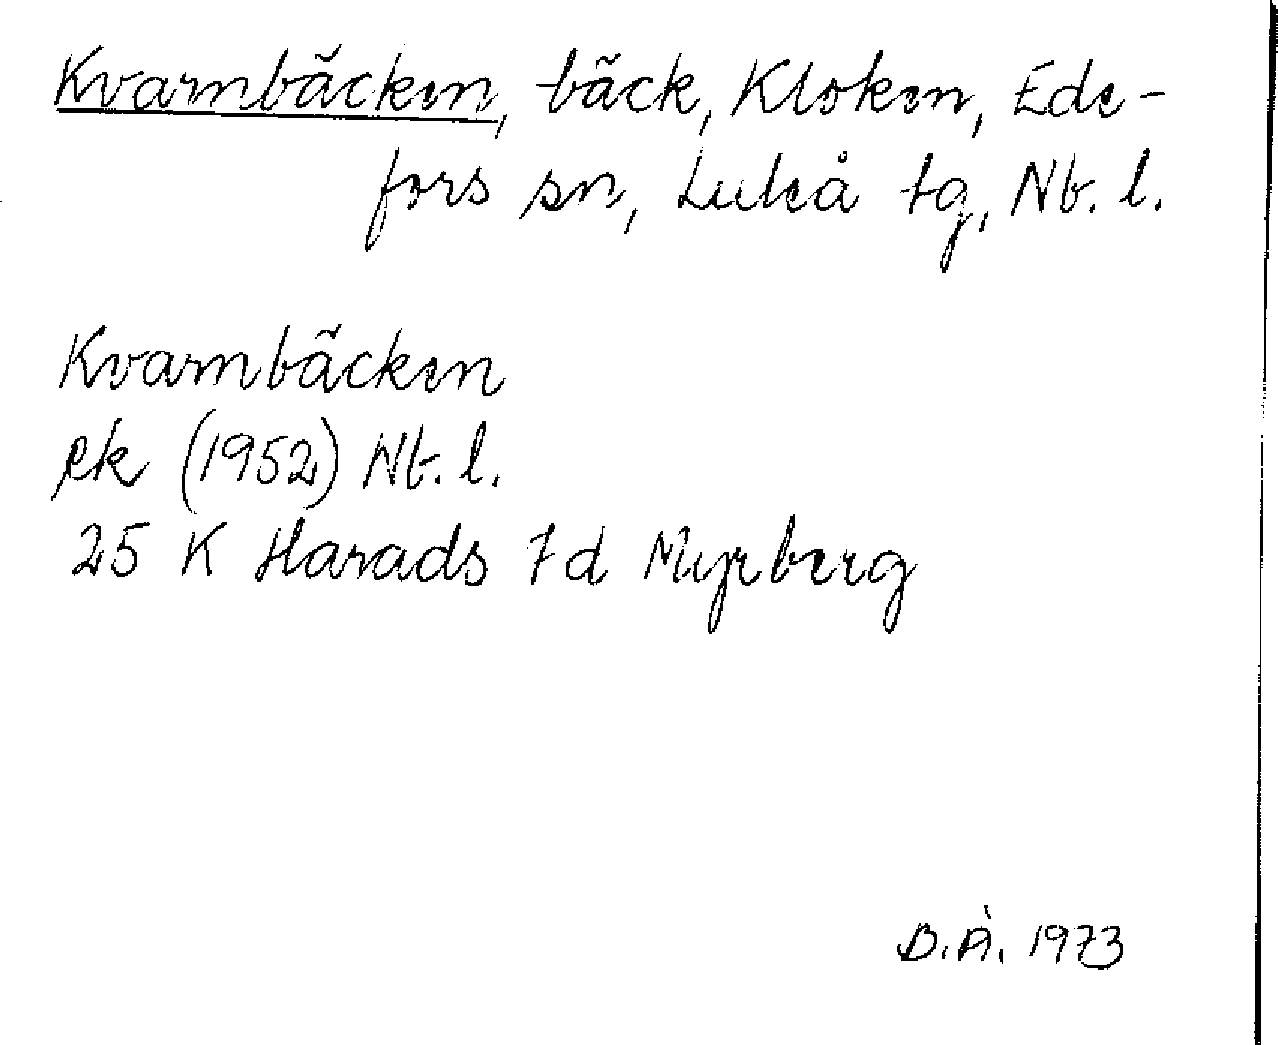 Kvarnbäcken, bäck, Kloken, Ede-
fors sn, Luleå tg, Nb. l.
Kvarnbäcken
ek (1952) Nb. l.
25 K Harads 7d Myrberg
B.Å. 1973